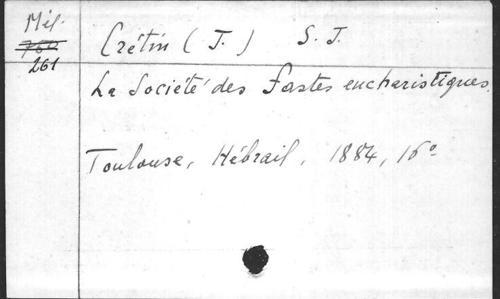 Mél.
760
261
Crétin (J.) S. J.
La Société des fastes eucharistiques.
Toulouse, Hébrail, 1884, 16°